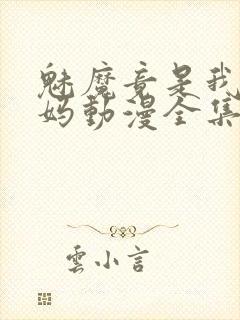 魅魔竟是我
妈動漫全集
雲小言